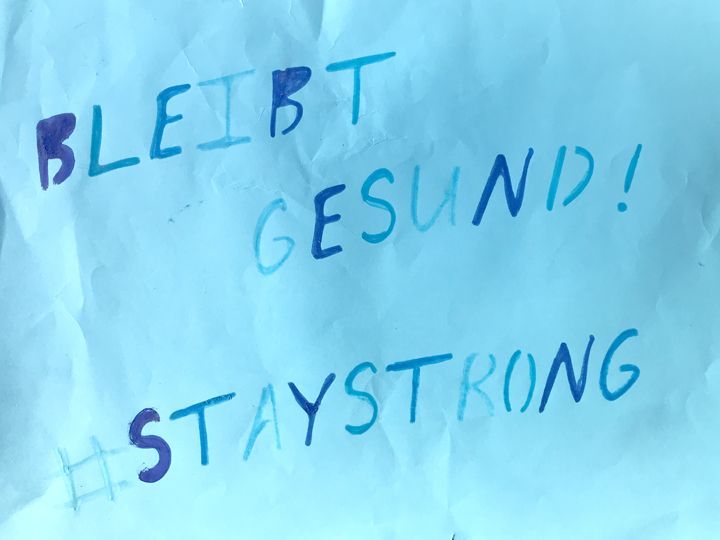 BLEIBT
GESUND!
#STAYSTRONG